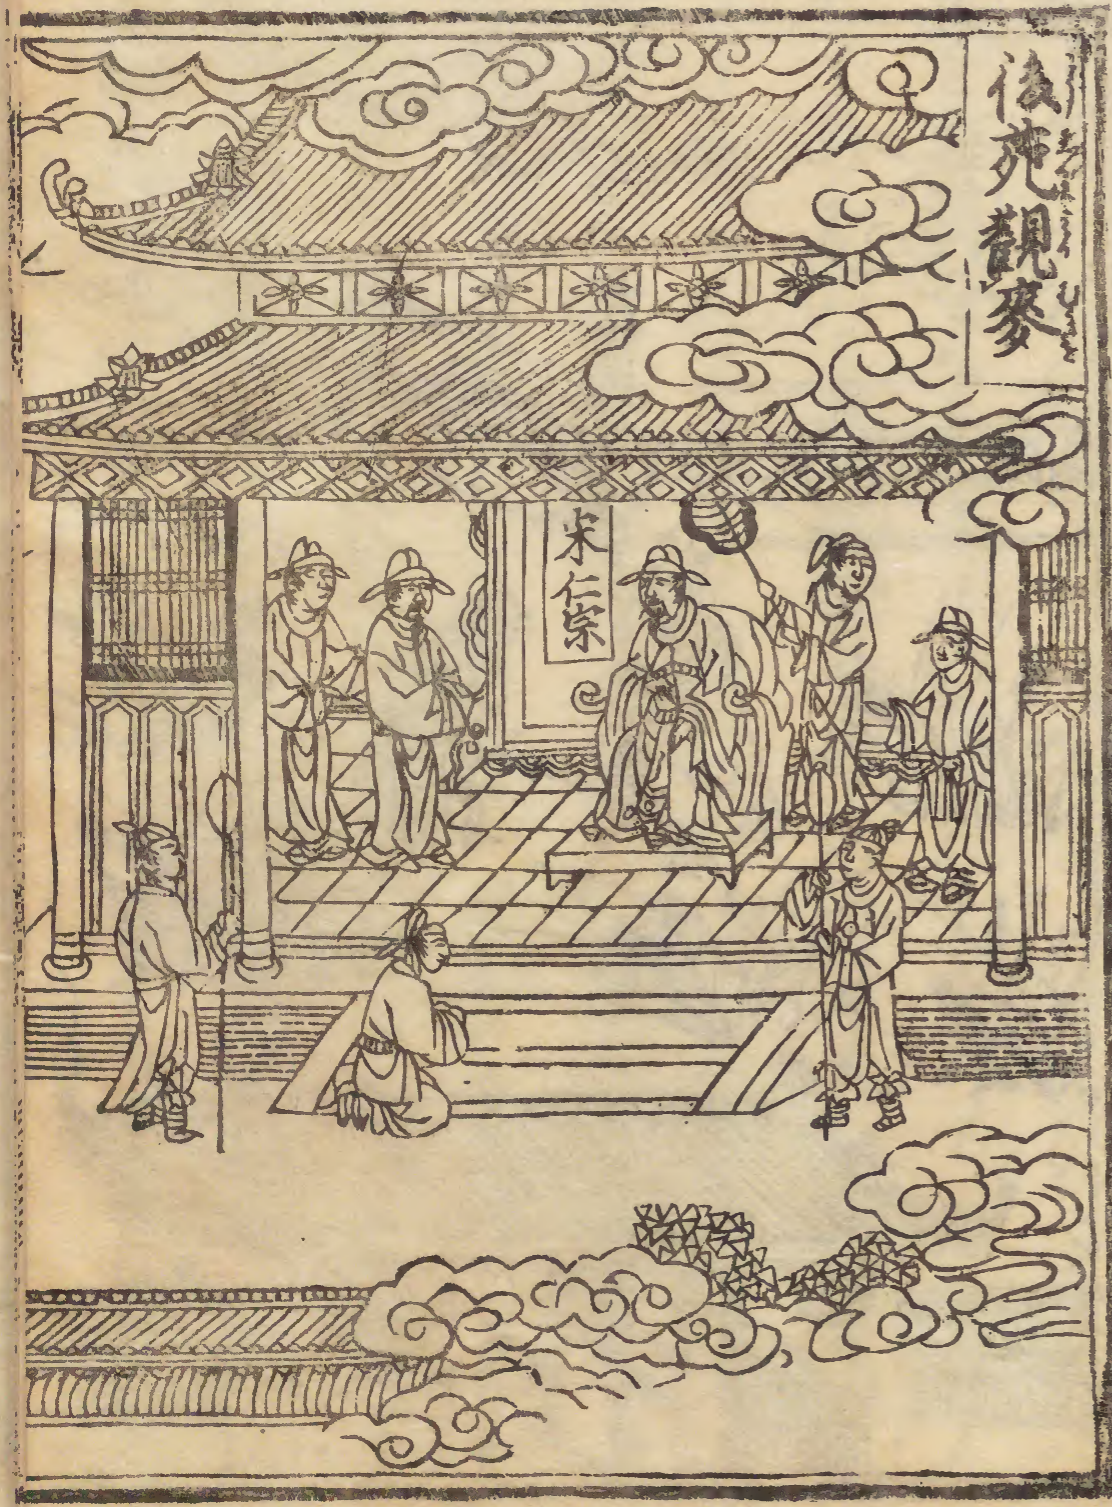 後苑觀麥
宋仁宗